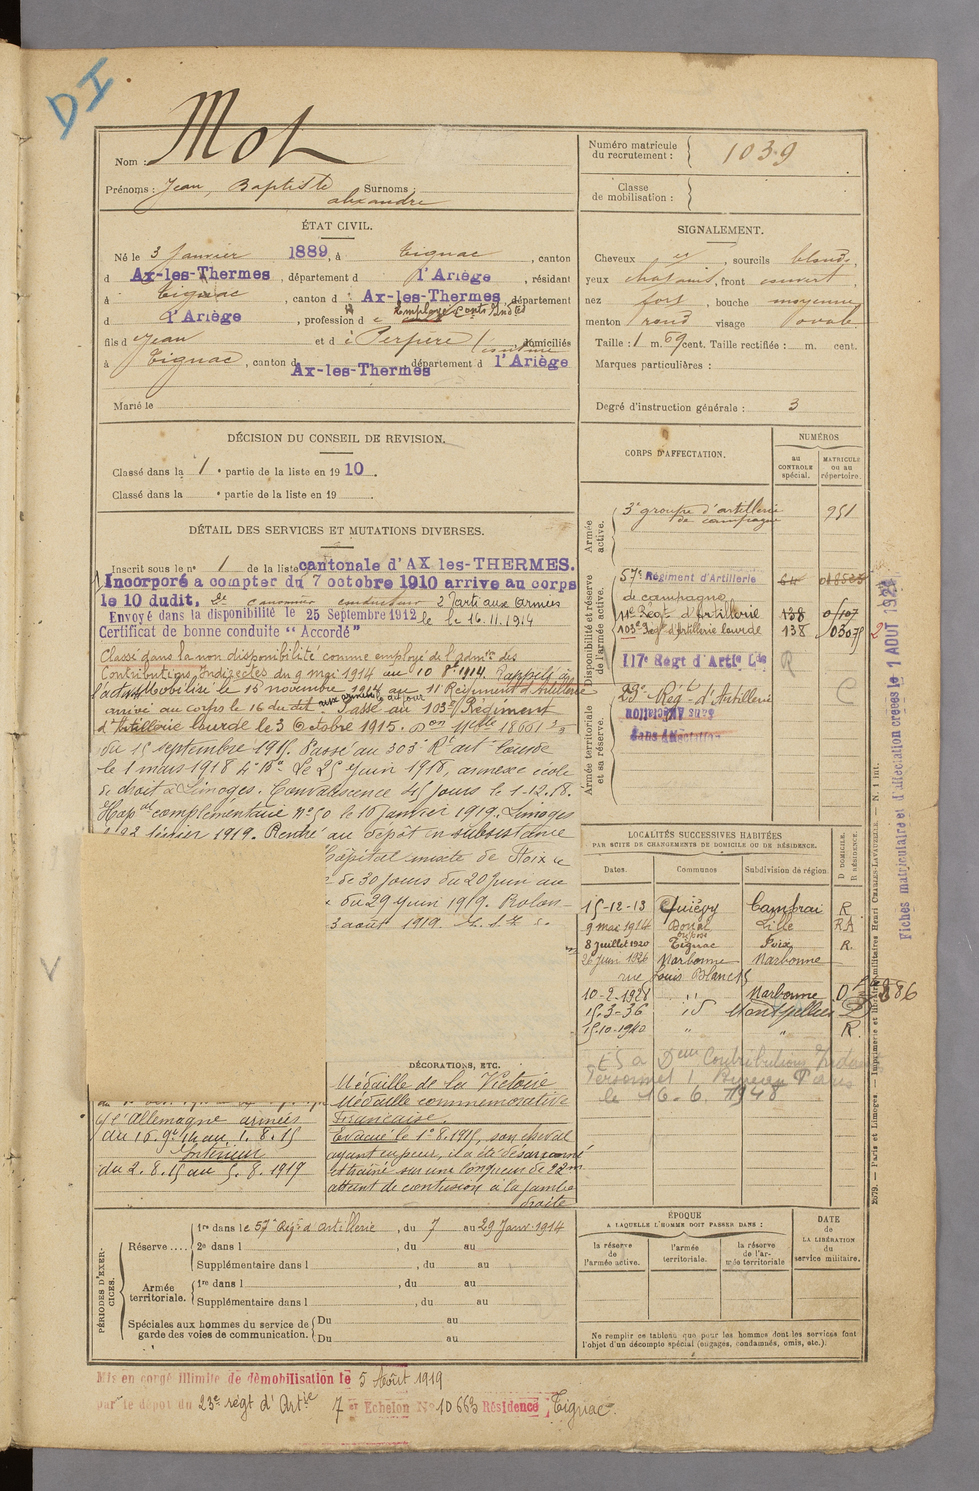 DI
Nom : Mot
Prénoms : Jean, Baptiste Surnoms :
alexandre
Numéro matricule
du recrutement : 1039
Classe
de mobilisation :
ÉTAT CIVIL.
Né le 3 Janvier 1889, à Tignac, canton
d Ax-les-Thermes, département d l'Ariège, résidant
à Tignac, canton d Ax-les-Thermes, département
d l'Ariège, profession d Employé Conts Indtes
fils d Jean et d Perpère domiciliés
à Tignac, canton d Ax-les-Thermes département d l'Ariège
Marié le
SIGNALEMENT.
Cheveux , sourcils blonds,
yeux chatains, front couvert,
nez fort, bouche moyenne
menton rond visage ovale
Taille : 1 m. 69 cent. Taille rectifiée : m. cent.
Marques particulières :
Degré d'instruction générale : 3
DÉCISION DU CONSEIL DE REVISION.
Classé dans la 1e partie de la liste en 1910.
Classé dans la e partie de la liste en 19
DÉTAIL DES SERVICES ET MUTATIONS DIVERSES.
Inscrit sous le n° 1 de la liste cantonale d'AX les-THERMES.
Incorporé a compter du 7 octobre 1910 arrive au corps
le 10 dudit, 2e canonnier conducteur Parti aux armées
Envoyé dans la disponibilité le 25 Septembre 1912 le 16.11.1914
Certificat de bonne conduite "Accordé"
Classé dans la non disponibilité comme employé de l'Admon des
Contributions Indirectes du 9 mai 1914 au 10 8bre 1914. Rappelé à
l'activité Mobilisé le 15 novembre 1914 au 11 Régiment d'Artillerie
arrivé au corps le 16 du dit aux armées le dit jour Passé au 103e Régiment
d'Artillerie lourde le 3 Octobre 1915.
du 15 septembre 1917. Passé au 303e Rt art lourde
le 1 mars 1918 Le 25 Juin 1918, annexe école
de droit à Limoges. Convalescence 45 jours le 1-12.18.
Hopal complémentaire n° 50 le 10 Janvier 1919. Limoges
22 février 1919. Rentré au dépôt en subsistance
Hôpital mixte de Foix le
de 30 jours du 20 Juin au
du 29 Juin 1919.
3 août 1919.
CORPS D'AFFECTATION.
NUMÉROS
au
CONTROLE
spécial.
MATRICULE
ou au
répertoire.
Armée
active.
3e groupe d'artillerie
de campagne
951
Disponibilité et réserve
de l'armée active.
57e Régiment d'Artillerie
de campagne
11e Régt d'Artillerie 138
103e Régt d'Artillerie lourde 138
117e Régt d'Artie Lde R
Armée territoriale
et sa réserve.
29e Régt d'Artillerie
Sans Affectation
Sans Affectation
Fiches matriculaire et d'affectation créées le 1 AOUT 192
LOCALITÉS SUCCESSIVES HABITÉES
PAR SUITE DE CHANGEMENTS DE DOMICILE OU DE RÉSIDENCE.
Dates.
Communes
Subdivision de région.
D DOMICILE.
R RÉSIDENCE.
15-12-13 Quiévy Cambrai R
9 mai 1914 Douai Lille RA
8 Juillet 1920 Tignac Foix R.
26 Juin 1926 Narbonne Narbonne
rue Louis Blanc 15
10-2-1928 " Narbonne D
15-3-36 id Montpellier
15-10-1940 " " R
ES a Don Contributions Indtes
Personnel 1 Bureau Paris
le 16-6.1948
DÉCORATIONS, ETC.
Médaille de la Victoire
Médaille commemorative
Française.
Evacué le 1er 8.1915, son cheval
ayant eu peur, il a été désarçonné
et traîné sur une longueur de 22m
atteint de contusion à la jambe
droite
c/ l'Allemagne armées
du 16.9bre 14 au 1.8.15
Intérieur
du 2.8.15 au 5.8.1919
PÉRIODES D'EXERCICES.
Réserve....
1re dans le 57e Régt d'Artillerie, du 7 au 29 Janv. 1914
2e dans l , du au
Supplémentaire dans l , du au
Armée
territoriale.
1re dans l , du au
Supplémentaire dans l , du au
Spéciales aux hommes du service de
garde des voies de communication.
Du au
Du au
ÉPOQUE
A LAQUELLE L'HOMME DOIT PASSER DANS :
la réserve
de
l'armée active.
l'armée
territoriale.
la réserve
de l'armée
territoriale
DATE
de
LA LIBÉRATION
du
service militaire.
Ne remplir ce tableau que pour les hommes dont les services font
l'objet d'un décompte spécial (engagés, condamnés, omis, etc.).
Mis en congé illimité de démobilisation le 5 Août 1919
par le dépot du 23e régt d'Artie 7e Echelon N° 10663 Résidence Tignac.
2679. — Paris et Limoges. — Imprimerie et librairie militaires Henri CHARLES-LAVAUZELLE. — N. 1 int.